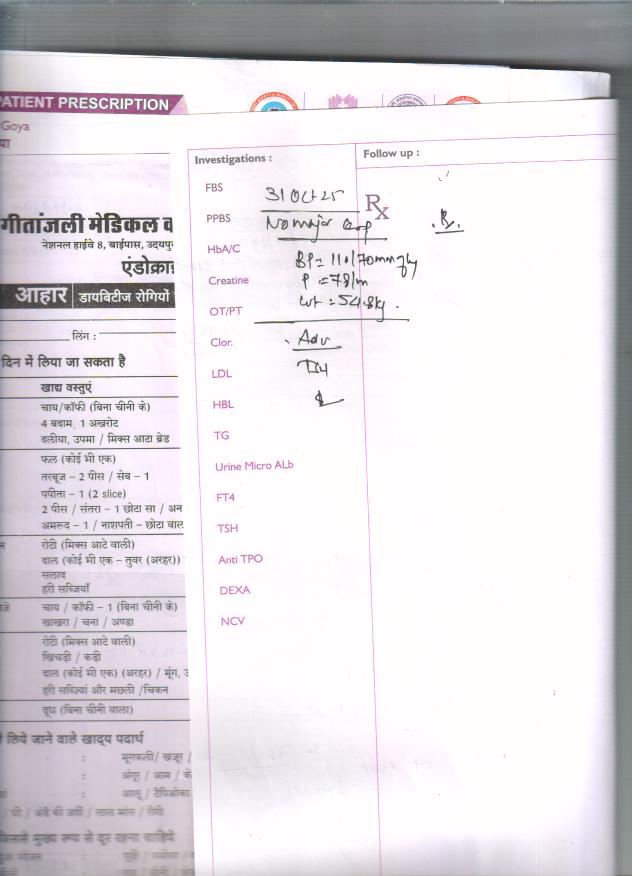 PATIENT PRESCRIPTION
Goya
या
गीतांजली मेडिकल क
नेशनल हाईवे 8, बाईपास, उदयपु
एंडोक्रा
आहार डायबिटीज रोगियों
लिंग :
दिन में लिया जा सकता है
खाद्य वस्तुएं
चाय/कॉफी (बिना चीनी के)
4 बदाम, 1 अखरोट
दलीया, उपमा / मिक्स आटा ब्रेड
फल (कोई भी एक)
तरबूज – 2 पीस / सेब – 1
पपीता – 1 (2 slice)
2 पीस / संतरा – 1 छोटा सा / अन
अमरूद – 1 / नाशपती – छोटा वाल
रोटी (मिक्स आटे वाली)
दाल (कोई भी एक – तुवर (अरहर))
सलाद
हरी सब्जियाँ
चाय / कॉफी – 1 (बिना चीनी के)
खाखरा / चना / अण्डा
रोटी (मिक्स आटे वाली)
खिचड़ी / कड़ी
दाल (कोई भी एक) (अरहर) / मूंग,
हरी सब्जियां और मछली /चिकन
दूध (बिना चीनी वाला)
लिये जाने वाले खाद्य पदार्थ
: मूंगफली/ खजूर /
: अंगूर / आम /
: आलू / टैपिओका
Investigations :
Follow up :
FBS
31 Oct 25
Rx
PPBS
No major
Rx.
HbA/C
BP = 110/70mmHg
Creatine
P = 78/m
OT/PT
wt = 54.8kg.
Clor.
Adv
LDL
HBL
TG
Urine Micro ALb
FT4
TSH
Anti TPO
DEXA
NCV